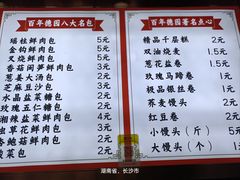 百年德园八大名包
瑶柱鲜肉包 5元
金钩鲜肉包 5元
叉烧鲜肉包 3元
香菇闷笋鲜肉包 3元
葱姜大汤包 2元
芝麻豆沙包 2元
水晶盐菜包 2元
玫瑰白糖包 2元
湘辣盐菜包 2元
鲜肉包 4元
鲍菇鲜肉包 3元
菜包 2元
百年德园著名点心
精品千层糕 2元
双油烧麦 1.5元
葱花肉卷 2元
玫瑰马蹄卷 1元
极品银丝卷 1元
荞麦馒头 2元
红豆卷 2元
小馒头（斤） 5元
大馒头（个） 1元
湖南省，长沙市